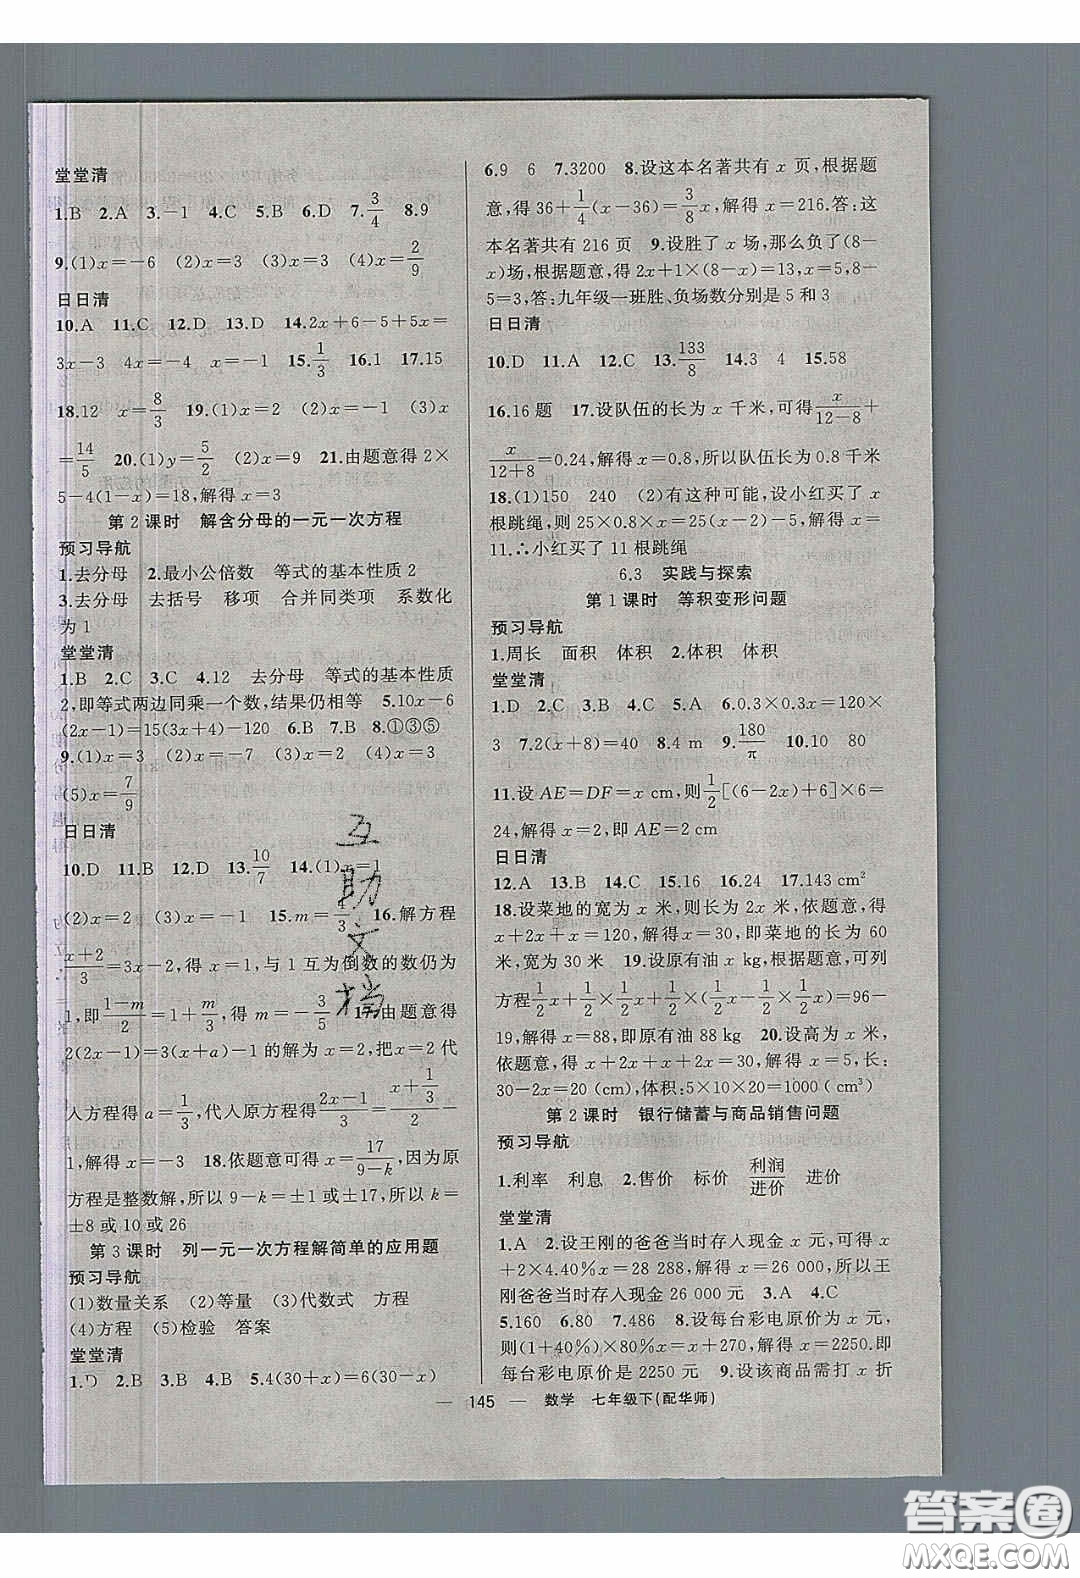 堂堂清
1.B 2.A 3.-1 4.C 5.B 6.D 7.3/4 8.9
9.(1)x=-6 (2)x=3 (3)x=3 (4)x=2/9
日日清
10.A 11.C 12.D 13.D 14.2x+6-5+5x=
3x-3 4x=-4 x=-1 15.1/3 16.1 17.15
18.12 x=8/3 19.(1)x=2 (2)x=-1 (3)x
=14/5 20.(1)y=5/2 (2)x=9 21.由题意得2×
5-4(1-x)=18,解得x=3
第2课时 解含分母的一元一次方程
预习导航
1.去分母 2.最小公倍数 等式的基本性质2
3.去分母 去括号 移项 合并同类项 系数化
为1
堂堂清
1.B 2.C 3.C 4.12 去分母 等式的基本性质
2,即等式两边同乘一个数,结果仍相等 5.10x-6
(2x-1)=15(3x+4)-120 6.B 7.B 8.①③⑤
9.(1)x=3 (2)x=-3 (3)x=4 (4)x=3
(5)x=7/9
日日清
10.D 11.B 12.D 13.10/7 14.(1)x=1
(2)x=2 (3)x=-1 15.m=4/3 16.解方程
(x+2)/3=3x-2,得x=1,与1互为倒数的数仍为
1,即(1-m)/2=1+m/3,得m=-3/5 17.由题意得
2(2x-1)=3(x+a)-1的解为x=2,把x=2代
入方程得a=1/3,代入原方程得(2x-1)/3=(x+1/3)/3-
1,解得x=-3 18.依题意可得x=17/(9-k),因为原
方程是整数解,所以9-k=±1或±17,所以k=
±8或10或26
第3课时 列一元一次方程解简单的应用题
预习导航
(1)数量关系 (2)等量 (3)代数式 方程
(4)方程 (5)检验 答案
堂堂清
1.D 2.B 3.B 4.B 5.4(30+x)=6(30-x)
6.9 6 7.3200 8.设这本名著共有x页,根据题
意,得36+1/4(x-36)=3/8x,解得x=216.答:这
本名著共有216页 9.设胜了x场,那么负了(8-
x)场,根据题意,得2x+1×(8-x)=13,x=5,8-
5=3,答:九年级一班胜、负场数分别是5和3
日日清
10.D 11.A 12.C 13.133/8 14.3 4 15.58
16.16题 17.设队伍的长为x千米,可得x/(12-8)+
x/(12+8)=0.24,解得x=0.8,所以队伍长为0.8千米
18.(1)150 240 (2)有这种可能,设小红买了x
根跳绳,则25×0.8×x=25(x-2)-5,解得x=
11.∴小红买了11根跳绳
6.3 实践与探索
第1课时 等积变形问题
预习导航
1.周长 面积 体积 2.体积 体积
堂堂清
1.D 2.C 3.B 4.C 5.A 6.0.3×0.3x=30×
3 7.2(x+8)=40 8.4 m 9.180/π 10.10 80
11.设AE=DF=x cm,则1/2[(6-2x)+6]×2=
6-2,解得x=2,即AE=2 cm
日日清
12.A 13.B 14.C 15.16 16.24 17.143 cm²
18.设菜地的宽为x米,则长为2x米,依题意,得
x+2x+x=120,解得x=30,即菜地的长为60
米,宽为30米 19.设原有油x kg,根据题意,可列
方程1/2x+1/2×1/2x+1/2×(x-1/2x-1/2×1/2x)=96-
19,解得x=88,即原有油88 kg 20.设高为x米,
依题意,得x+2x+x+2x=30,解得x=5,长:
30-2x=20(cm),体积:5×10×20=1000(cm³)
第2课时 银行储蓄与商品销售问题
预习导航
1.利率 利息 2.售价 标价 利润/进价 进价
堂堂清
1.A 2.设王刚的爸爸当时存入现金x元,可得x
x+2×4.40%x=28 288,解得x=26 000,所以王
刚爸爸当时存入现金26 000元 3.A 4.C
5.160 6.80 7.486 8.设每台彩电原价为x元,
则(1+40%)×80%x=x+270,解得x=2250.即
每台彩电原价是2250元 9.设该商品需打x折
— 145 — 数学 七年级下(配华师)
互助文档
答案圈
MXQE.COM